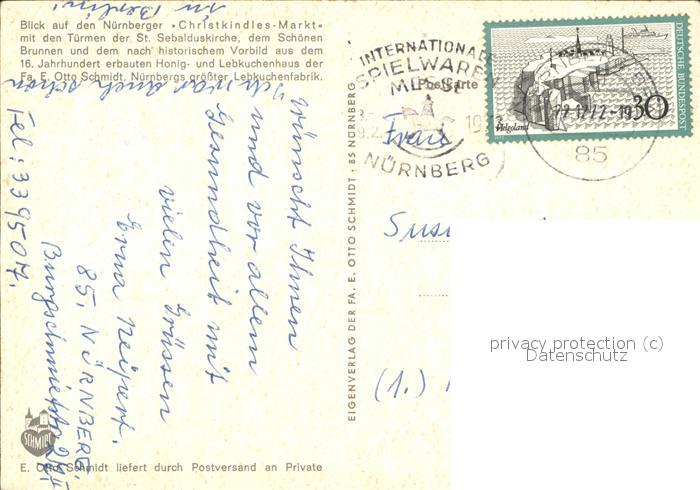 Blick auf den Nürnberger »Christkindles-Markt«
mit den Türmen der St. Sebalduskirche, dem Schönen
Brunnen und dem nach historischem Vorbild aus dem
16. Jahrhundert erbauten Honig- und Lebkuchenhaus der
Fa. E. Otto Schmidt, Nürnbergs größter Lebkuchenfabrik.
wünscht Ihnen
und vor allem
Gesundheit mit
vielen Grüssen
Erna Neipert.
85. NÜRNBERG,
Tel: 339504.
Ich war auch schon
in Berlin!
SCHMIDT
E. Otto Schmidt liefert durch Postversand an Private
EIGENVERLAG DER FA. E. OTTO SCHMIDT · 85 NÜRNBERG
Postkarte
INTERNATIONALE
SPIELWAREN
NÜRNBERG
85
Helgoland
30
DEUTSCHE BUNDESPOST
Frau
Susi
(1.)
privacy protection (c)
Datenschutz